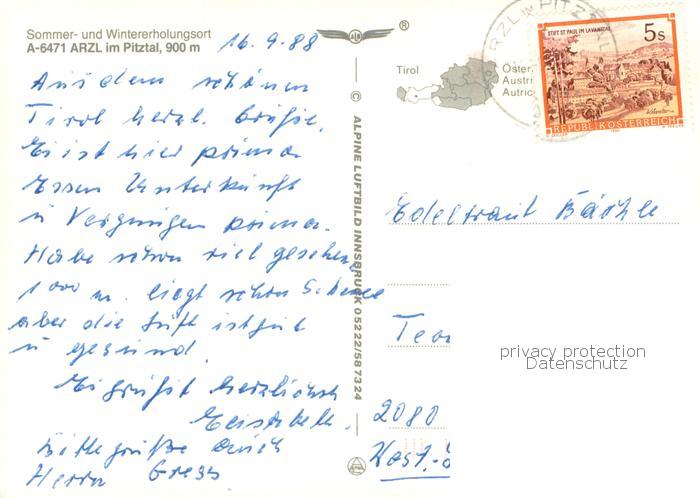 Sommer- und Wintererholungsort
A-6471 ARZL im Pitztal, 900 m
16.9.88
Aus dem schönen
Tirol herzl. Grüße.
Es ist hier prima
Essen Unterkunft
u Vergnügen prima.
Habe schon viel gesehen,
1000 m. liegt schon Schnee
aber die Luft ist gut
u gesund.
Es grüßt herzlichst
Bitte grüße auch
Herrn
®
© ALPINE LUFTBILD INNSBRUCK 05222/587324
ARZL IM PITZTAL
Tirol
Öster
Austri
Autric
STIFT ST. PAUL IM LAVANTTAL
5s
REPUBLIK ÖSTERREICH
Edeltraut Bächle
privacy protection
Datenschutz
2080